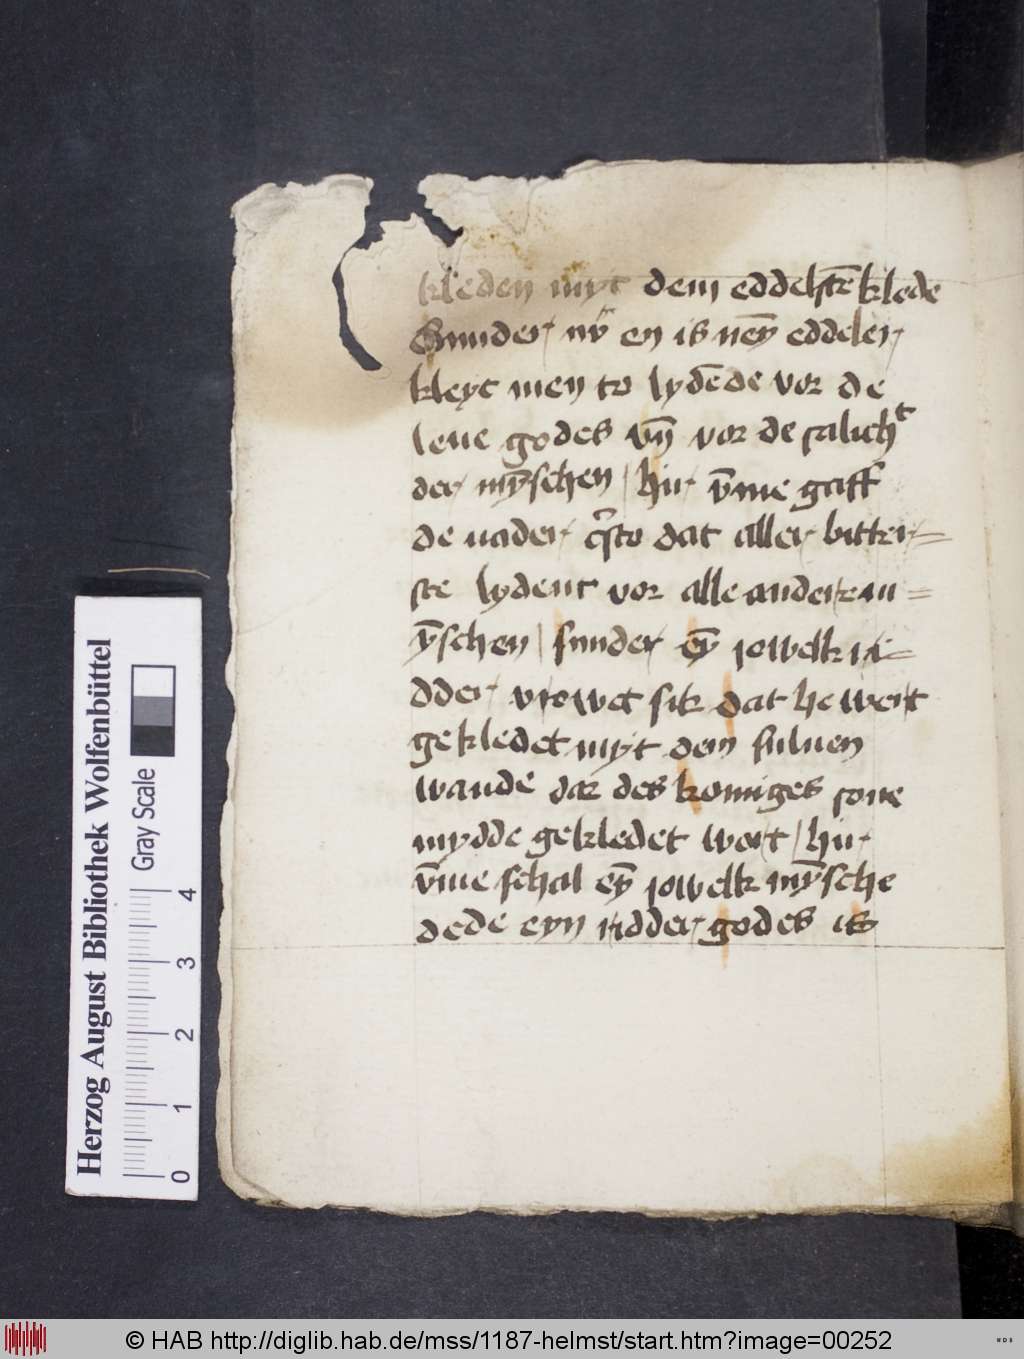 kleden myt dem eddelstē klede
Sunder nv̄ en is nēy eddeler
kleyt men to lydēde vor de
leue godes vn̄ vor de salichᵗ
der mȳschen / hir v̄me gaff
de uader cr̄sto dat aller bitter=
ste lydent vor alle andere m=
ȳschen / sunder eȳ jowelk ri=
dder vrowet sik dat he wert
gekledet myt dem suluen
wande dar des koniges sone
mydde gekledet wert / hir
v̄me schal eȳ jowelk mȳsche
dede eyn ridder godes is
Herzog August Bibliothek Wolfenbüttel
Gray Scale
0 1 2 3 4
© HAB http://diglib.hab.de/mss/1187-helmst/start.htm?image=00252
WDB